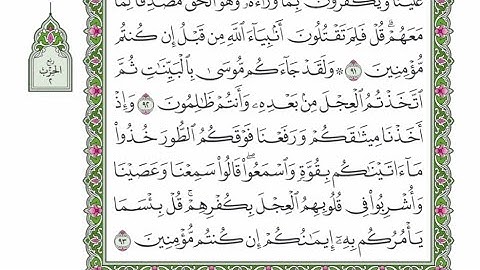 عَلَيْنَا وَيَكْفُرُونَ بِمَا وَرَآءَهُۥ وَهُوَ ٱلْحَقُّ مُصَدِّقًا لِّمَا
مَعَهُمْ ۗ قُلْ فَلِمَ تَقْتُلُونَ أَنۢبِيَآءَ ٱللَّهِ مِن قَبْلُ إِن كُنتُم
مُّؤْمِنِينَ ٩١ ۞ وَلَقَدْ جَآءَكُم مُّوسَىٰ بِٱلْبَيِّنَٰتِ ثُمَّ
ٱتَّخَذْتُمُ ٱلْعِجْلَ مِنۢ بَعْدِهِۦ وَأَنتُمْ ظَٰلِمُونَ ٩٢ وَإِذْ
أَخَذْنَا مِيثَٰقَكُمْ وَرَفَعْنَا فَوْقَكُمُ ٱلطُّورَ خُذُوا۟
مَآ ءَاتَيْنَٰكُم بِقُوَّةٍ وَٱسْمَعُوا۟ ۖ قَالُوا۟ سَمِعْنَا وَعَصَيْنَا
وَأُشْرِبُوا۟ فِى قُلُوبِهِمُ ٱلْعِجْلَ بِكُفْرِهِمْ ۚ قُلْ بِئْسَمَا
يَأْمُرُكُم بِهِۦٓ إِيمَٰنُكُمْ إِن كُنتُم مُّؤْمِنِينَ ٩٣
ربع
الحزب
٢